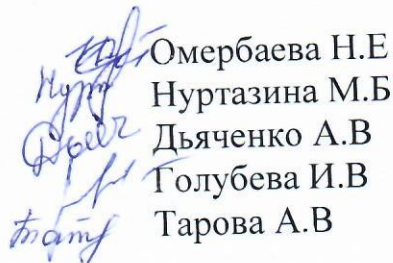 Омербаева Н.Е
Нуртазина М.Б
Дьяченко А.В
Голубева И.В
Тарова А.В